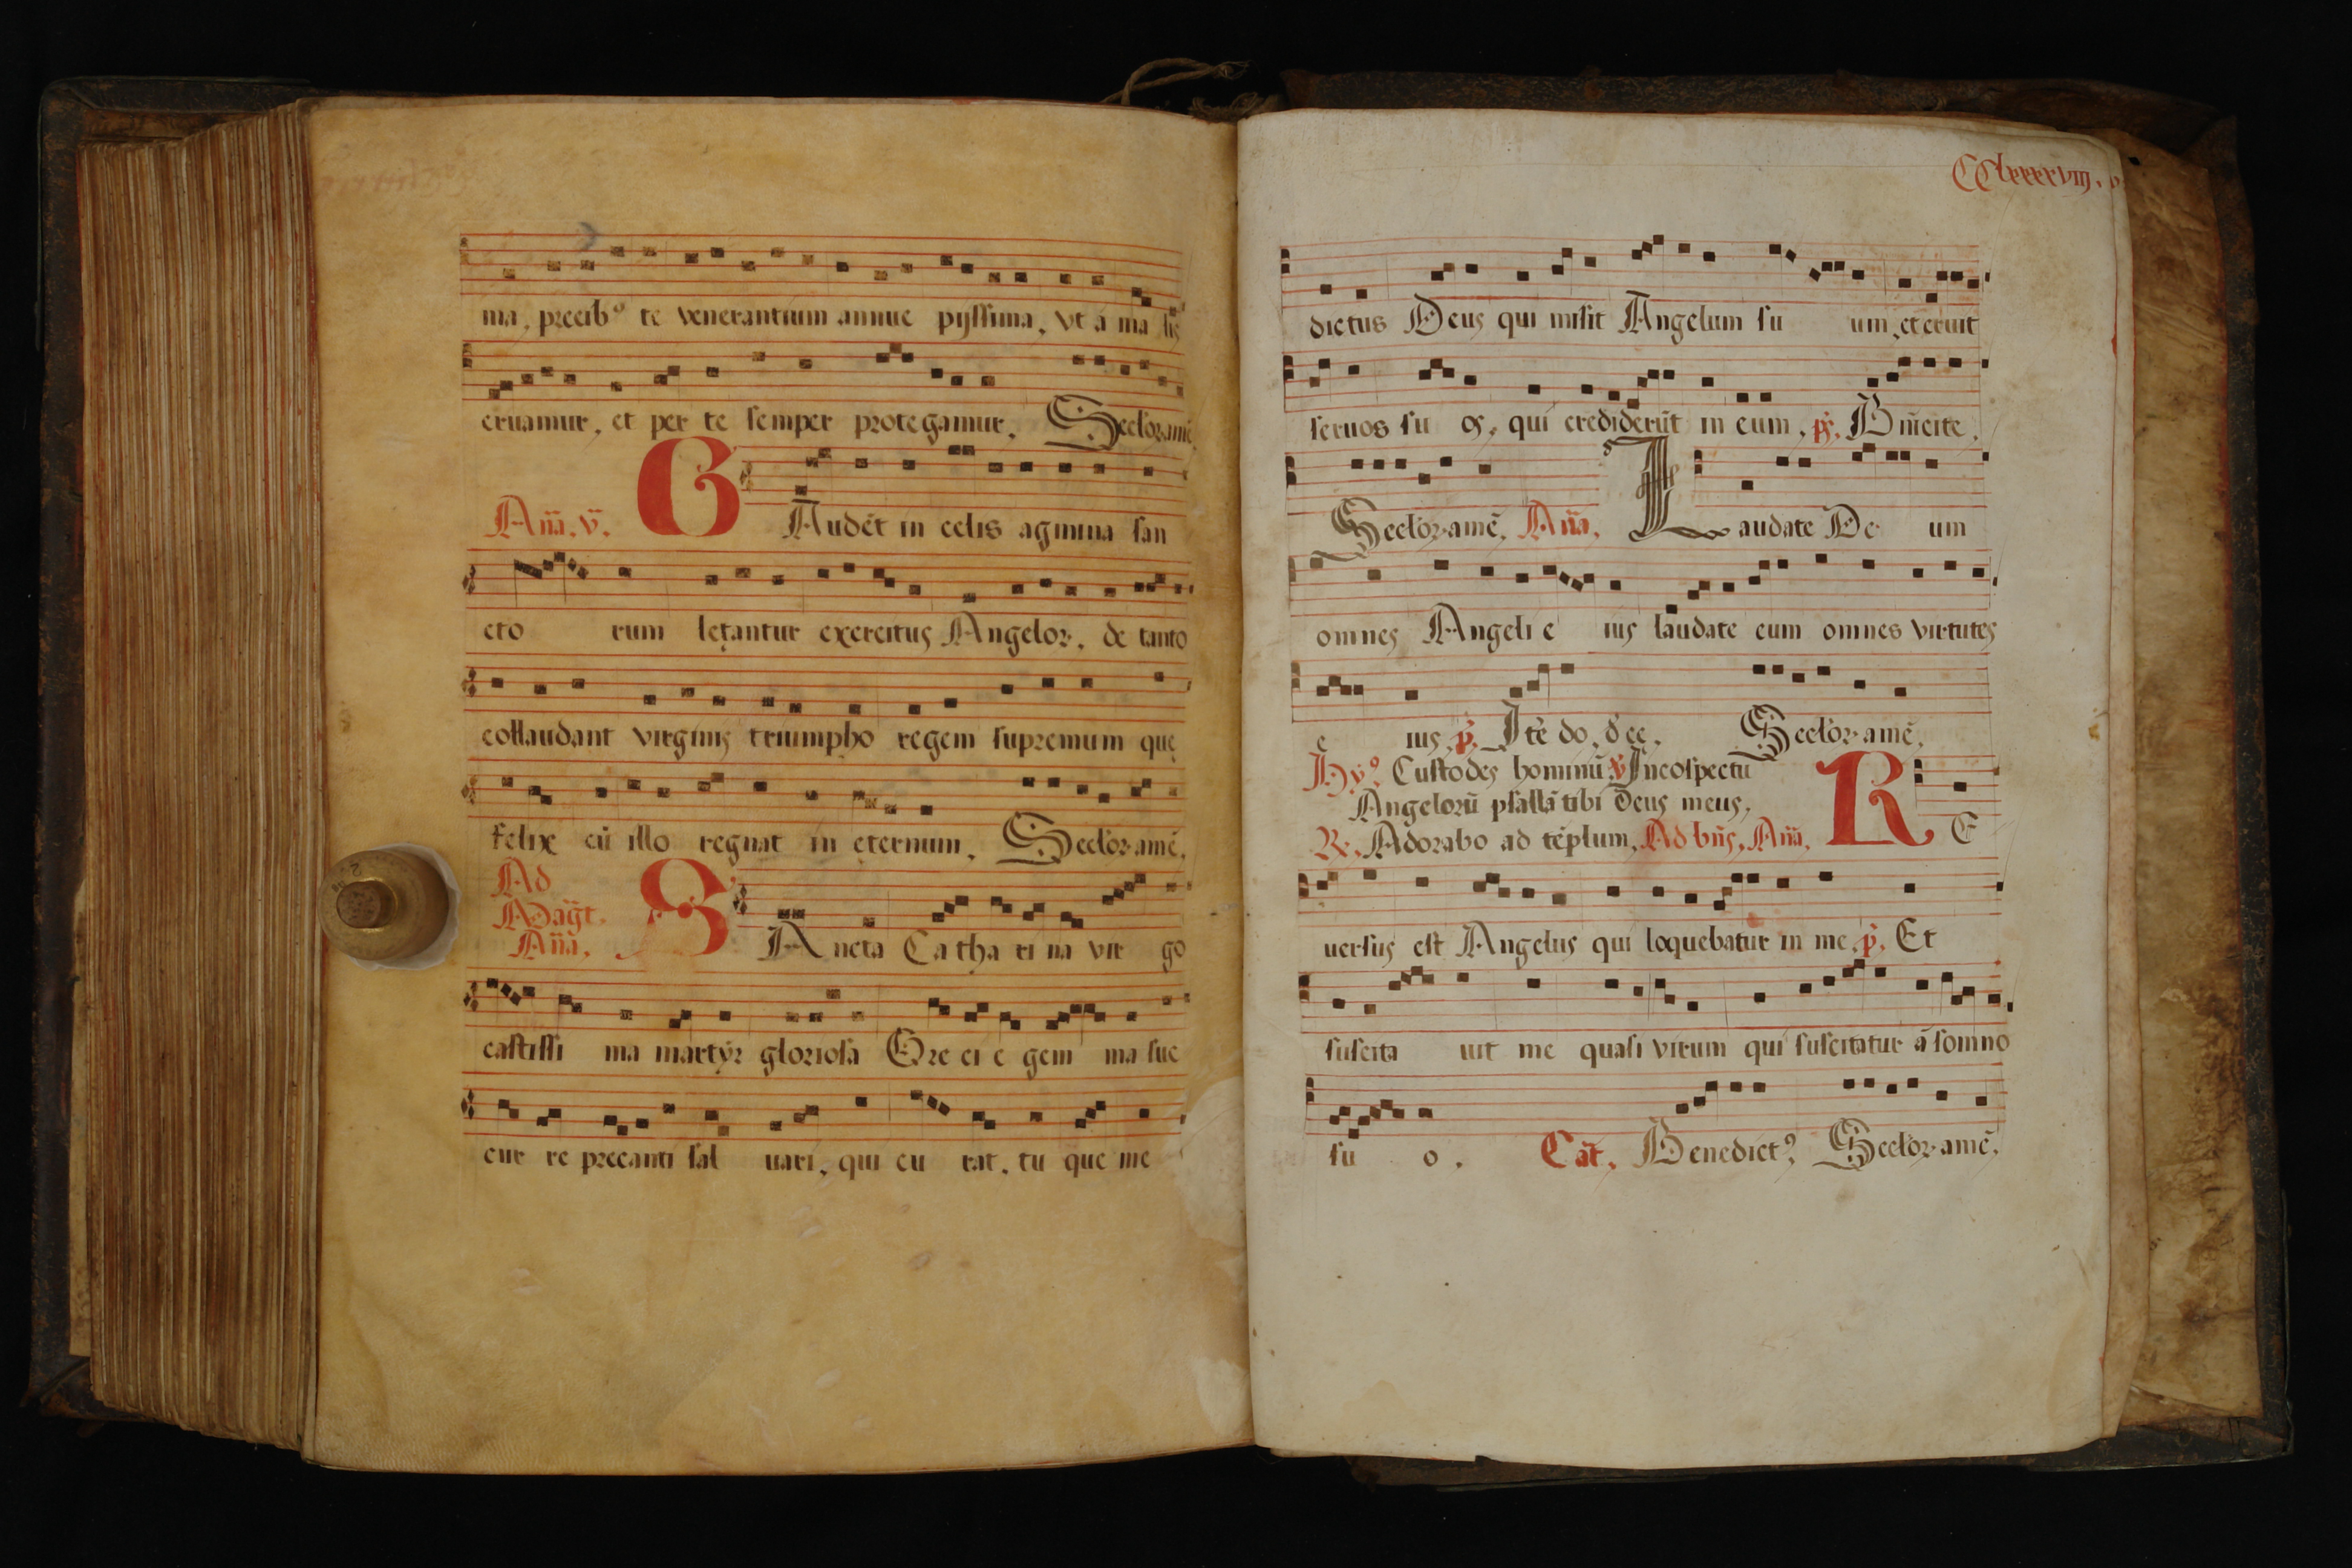 ma, precib⁹ te venerantium annue pijssima, vt á ma lis
eruamur, et per te semper protegamur, Seclor. amē
Aña. v. G Audēt in celis agmina san
cto rum lętantur exercitus Angelor. de tanto
collaudant virginis triumpho regem supremum quę
felix cū illo regnat in eternum, Seclor. amē,
Ad
Mag̃t.
Aña, S Ancta Ca tha ri na vir go
castissi ma martÿr gloriosa Gre ci e gem ma suc
cur re precanti sal uari, qui cu rat, tu que me
CClxxxxviij.
dictus Deus qui misit Angelum su um, et eruit
seruos su os, qui credidert̃ in eum, ps, Bñ icite,
Seclor. amē, Aña, L audate De um
omnes Angeli e ius laudate eum omnes virtutes
e ius, p̃, Itē do. d ee, Seclor. amē,
Hy⁹, Custodes hominū v̄ Incospectu
Angelorū psallā tibi Deus meus,
R. Adorabo ad tēplum, Ad bñs, Aña, R E
uersus est Angelus qui loquebatur in me, p̃, Et
suscita uit me quasi virum qui suscitatur á somno
su o, Cāt, Benedict⁹, Seclor. amē,